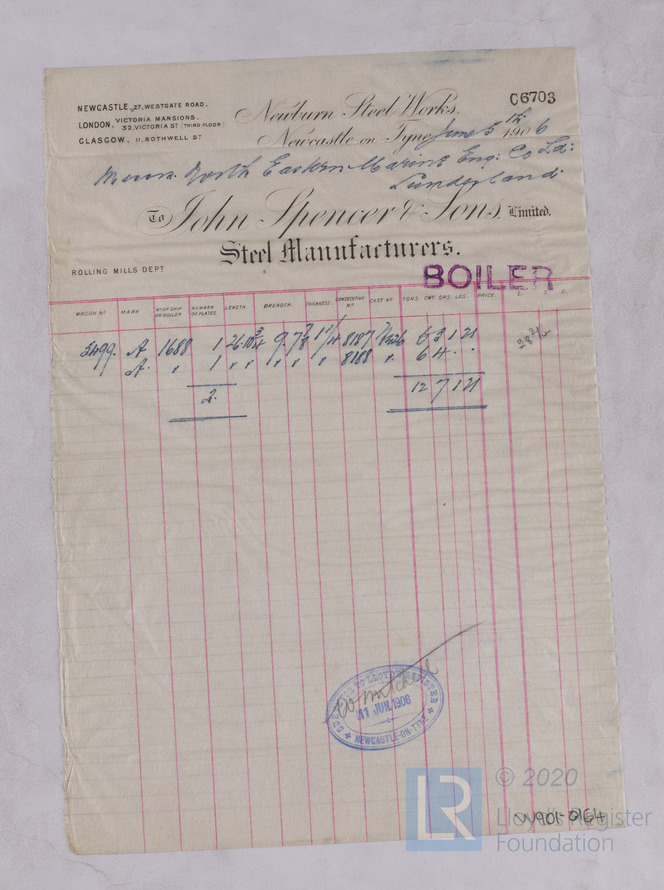 NEWCASTLE, 27, WESTGATE ROAD.
LONDON, VICTORIA MANSIONS,
32, VICTORIA ST (THIRD FLOOR)
GLASGOW, 11, BOTHWELL ST
C6703
Newburn Steel Works.
Newcastle-on-Tyne, June 5th 1906
Messrs. North Eastern Marine Eng: Co Ld:
Sunderland.
To John Spencer & Sons, Limited.
Steel Manufacturers.
ROLLING MILLS DEPT
BOILER
WAGON Nº MARK Nº OF SHIP OR BOILER NUMBER OF PLATES LENGTH BREADTH THICKNESS CONSECUTIVE Nº CAST Nº TONS. CWT. QRS. LBS. PRICE. £ S. D.
5499. A 1688 1 26.10¾ 9.7⅞ 8187 6 3 1 21
A. " 1 " " " " " 8188 " 6 4 . .
2. 12 7 1 21
W Mitchell
LLOYD'S REGISTER
11 JUN. 1906
NEWCASTLE-ON-TYNE
LR
© 2020
Lloyd's Register
Foundation
W901-0164